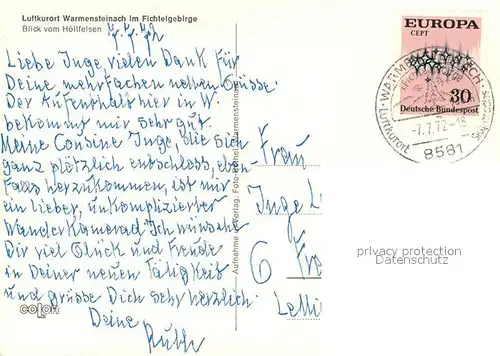 Luftkurort Warmensteinach im Fichtelgebirge
Blick vom Höllfelsen
7.7.72
Liebe Inge, vielen Dank für
Deine mehrfachen netten Grüsse.
Der Aufenthalt hier in W.
bekommt mir sehr gut.
Meine Cousine Inge, die sich
ganz plötzlich entschloss, eben-
falls herzukommen, ist mir
ein lieber, unkomplizierter
Wanderkamerad. Ich wünsche
Dir viel Glück und Freude
in Deiner neuen Tätigkeit
und grüsse Dich sehr herzlich.
Deine
Ruth
COLOR
Aufnahme u. Verlag: Foto Warmensteinach
EUROPA
CEPT
30
Deutsche Bundespost
WARMENSTEINACH
Luftkurort
-7.7.72-18
8581
Frau
Inge L
6 Fra
privacy protection
Datenschutz